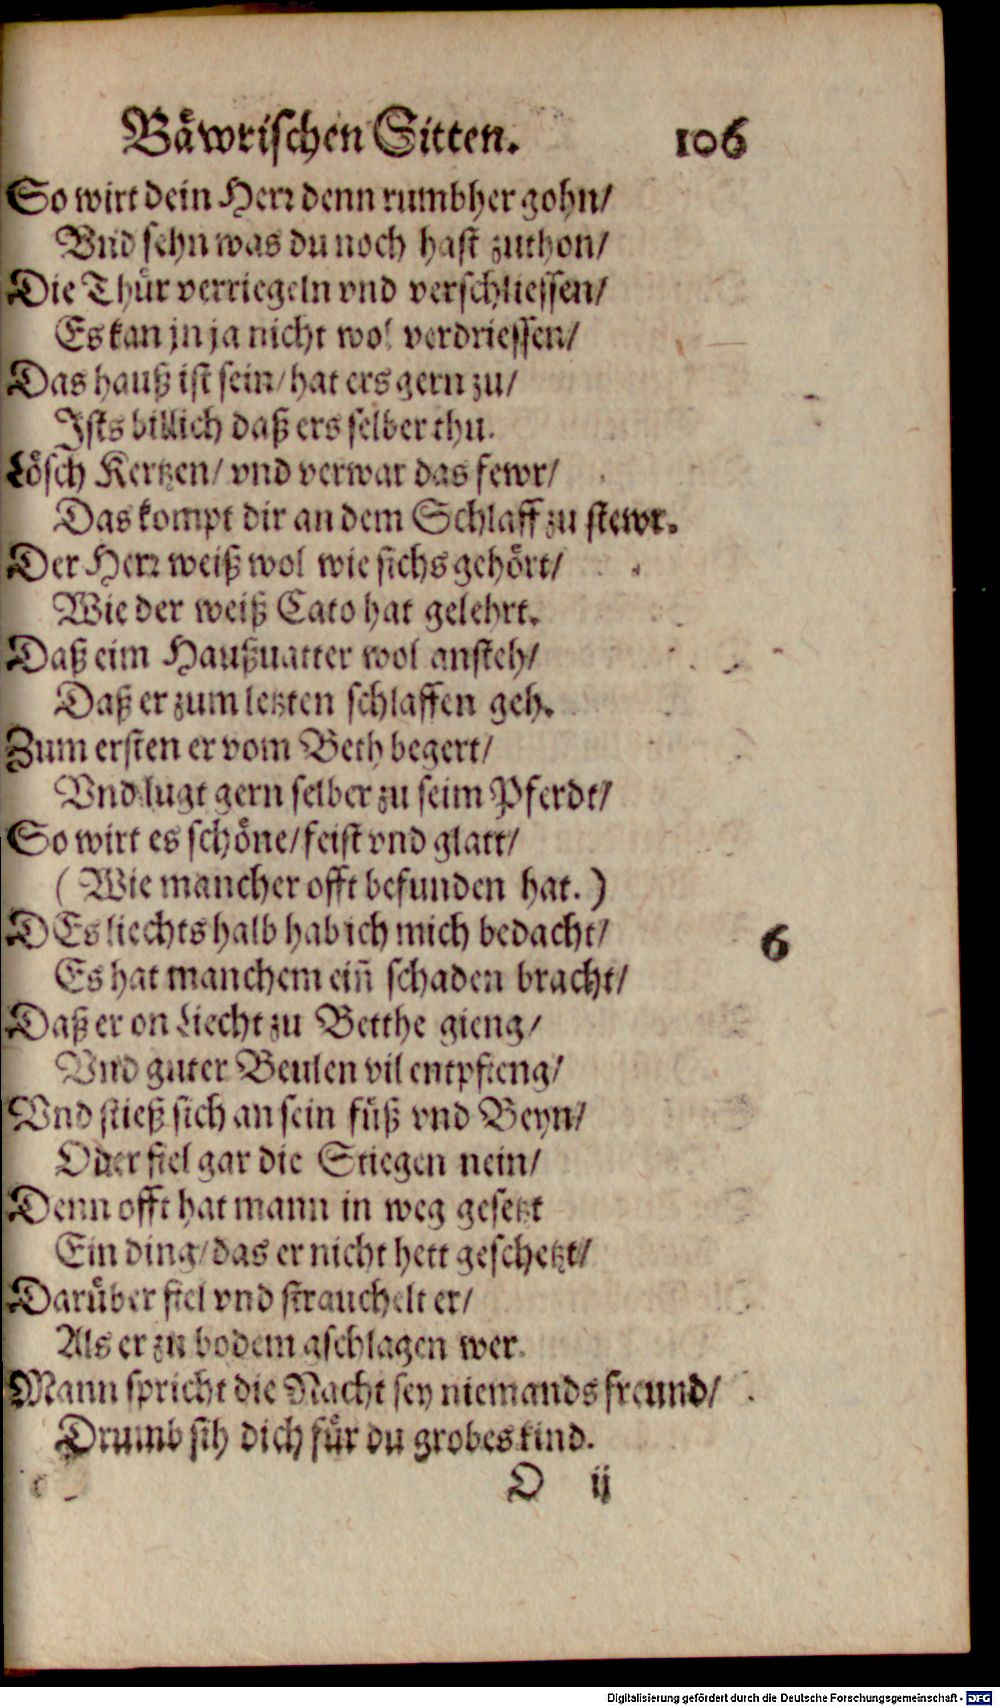 Bäwrischen Sitten. 106
So wirt dein Herr denn rumbher gohn/
Vnd sehn was du noch hast zuthon/
Die Thür verriegeln vnd verschliessen/
Es kan jn ja nicht wol verdriessen/
Das hauß ist sein/ hat ers gern zu/
Ists billich daß ers selber thu.
Lösch Kertzen/ vnd verwar das fewr/
Das kompt dir an dem Schlaff zu stewr.
Der Herr weiß wol wie sichs gehört/
Wie der weiß Cato hat gelehrt.
Daß eim Haußuatter wol ansteh/
Daß er zum letzten schlaffen geh.
Zum ersten er vom Beth begert/
Vnd lugt gern selber zu seim Pferdt/
So wirt es schöne/ feist vnd glatt/
( Wie mancher offt befunden hat. )
DEs liechts halb hab ich mich bedacht/ 6
Es hat manchem ein̄ schaden bracht/
Daß er on Liecht zu Betthe gieng/
Vnd guter Beulen vil entpfieng/
Vnd stieß sich an sein füß vnd Beyn/
Oder fiel gar die Stiegen nein/
Denn offt hat mann in weg gesetzt
Ein ding/ das er nicht hett geschetzt/
Darüber fiel vnd strauchelt er/
Als er zu bodem gschlagen wer.
Mann spricht die Nacht sey niemands freund/
Drumb sih dich für du grobes kind.
O ij
Digitalisierung gefördert durch die Deutsche Forschungsgemeinschaft - DFG